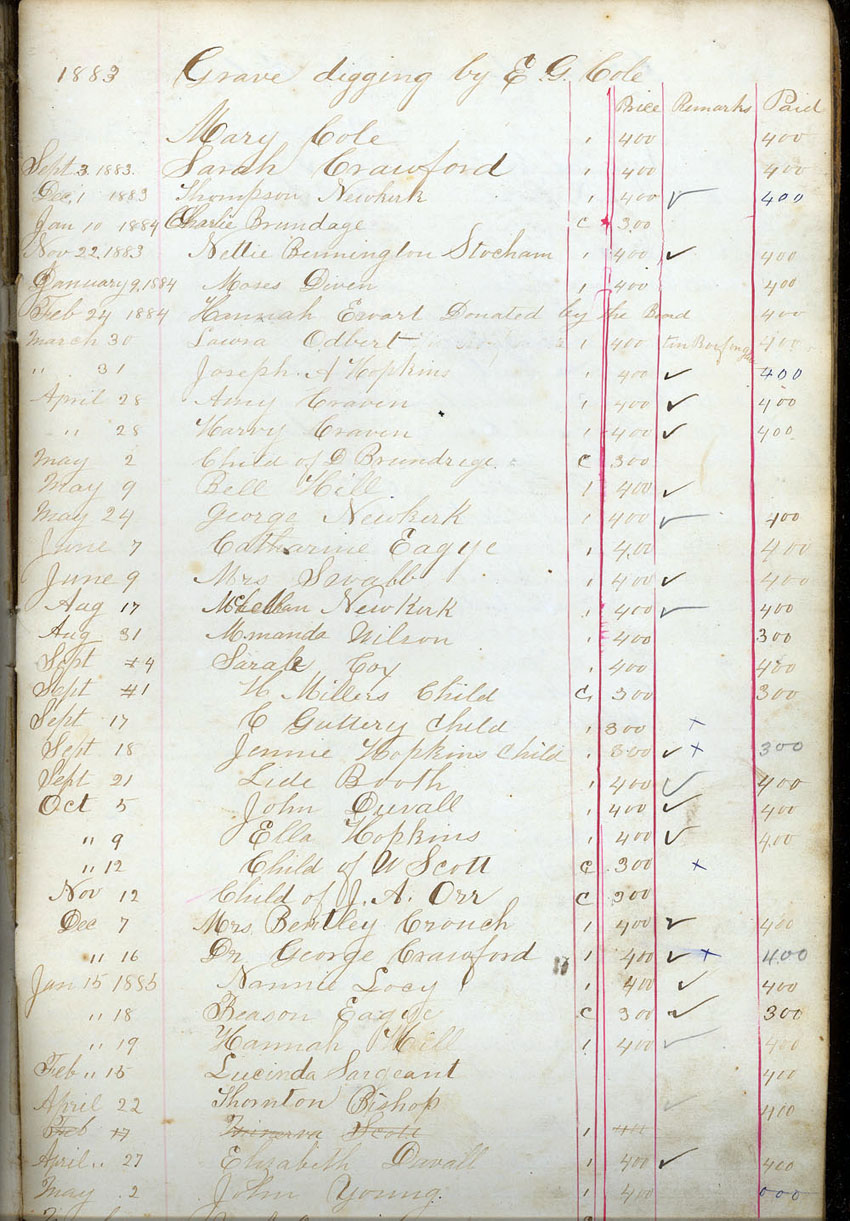 1883 Grave digging by E. G. Cole
Price Remarks Paid
Mary Cole 1 400 400
Sept 3. 1883. Sarah Crawford 1 400 400
Dec. 1 1883 Thompson Newkirk 1 400 ✓ 400
Jan 10 1884 Charlie Brundage C 300
Nov 22, 1883 Nettie Bennington Stocham 1 400 ✓ 400
January 9, 1884 Moses Diven 1 400 400
Feb 24 1884 Hannah Ewart Donated by the Board 400
March 30 Laura Odbert 1 400 400
" 31 Joseph. A Hopkins 1 400 ✓ 400
April 28 Amy Craven 1 400 ✓ 400
" 28 Harry Craven 1 400 ✓ 400
May 2 Child of D Brundrege C 300
May 9 Bell Hill 1 400 ✓
May 24 George Newkirk 1 400 ✓ 400
June 7 Catharine Eagye 1 400 400
June 9 Mrs Sevabb 1 400 ✓ 400
Aug 17 NewKirk 1 400 ✓ 400
Aug 31 Wilson 1 400 300
Sept 4 Sarah Cox 1 400 400
Sept 1 W Millers Child C 300 300
Sept 17 C Guttery Child 1 300 x
Sept 18 Jennie Hopkins Child 1 300 ✓ x 300
Sept 21 Lide Booth 1 400 ✓ 400
Oct 5 John Duvall 1 400 ✓ 400
" 9 Ella Hopkins 1 400 ✓ 400
" 12 Child of W Scott C 300 x
Nov 12 Child of J. A. Orr C 300
Dec 7 Mrs. Bentley Crouch 1 400 ✓ 400
" 16 Dr. George Crawford 1 400 ✓ x 400
Jan 15 1885 Nannie Locy 1 400 ✓ 400
" 18 Beason Eagye C 300 ✓ 300
" 19 Hannah Hill 1 400 ✓ 400
Feb " 15 Lucinda Sargeant 400
April 22 Thornton Bishop ✓ 400
Feb 17 Minerva Scott 1 400
April " 27 Elizabeth Duvall 1 400 ✓ 400
May 2 John Young. 1 400 000